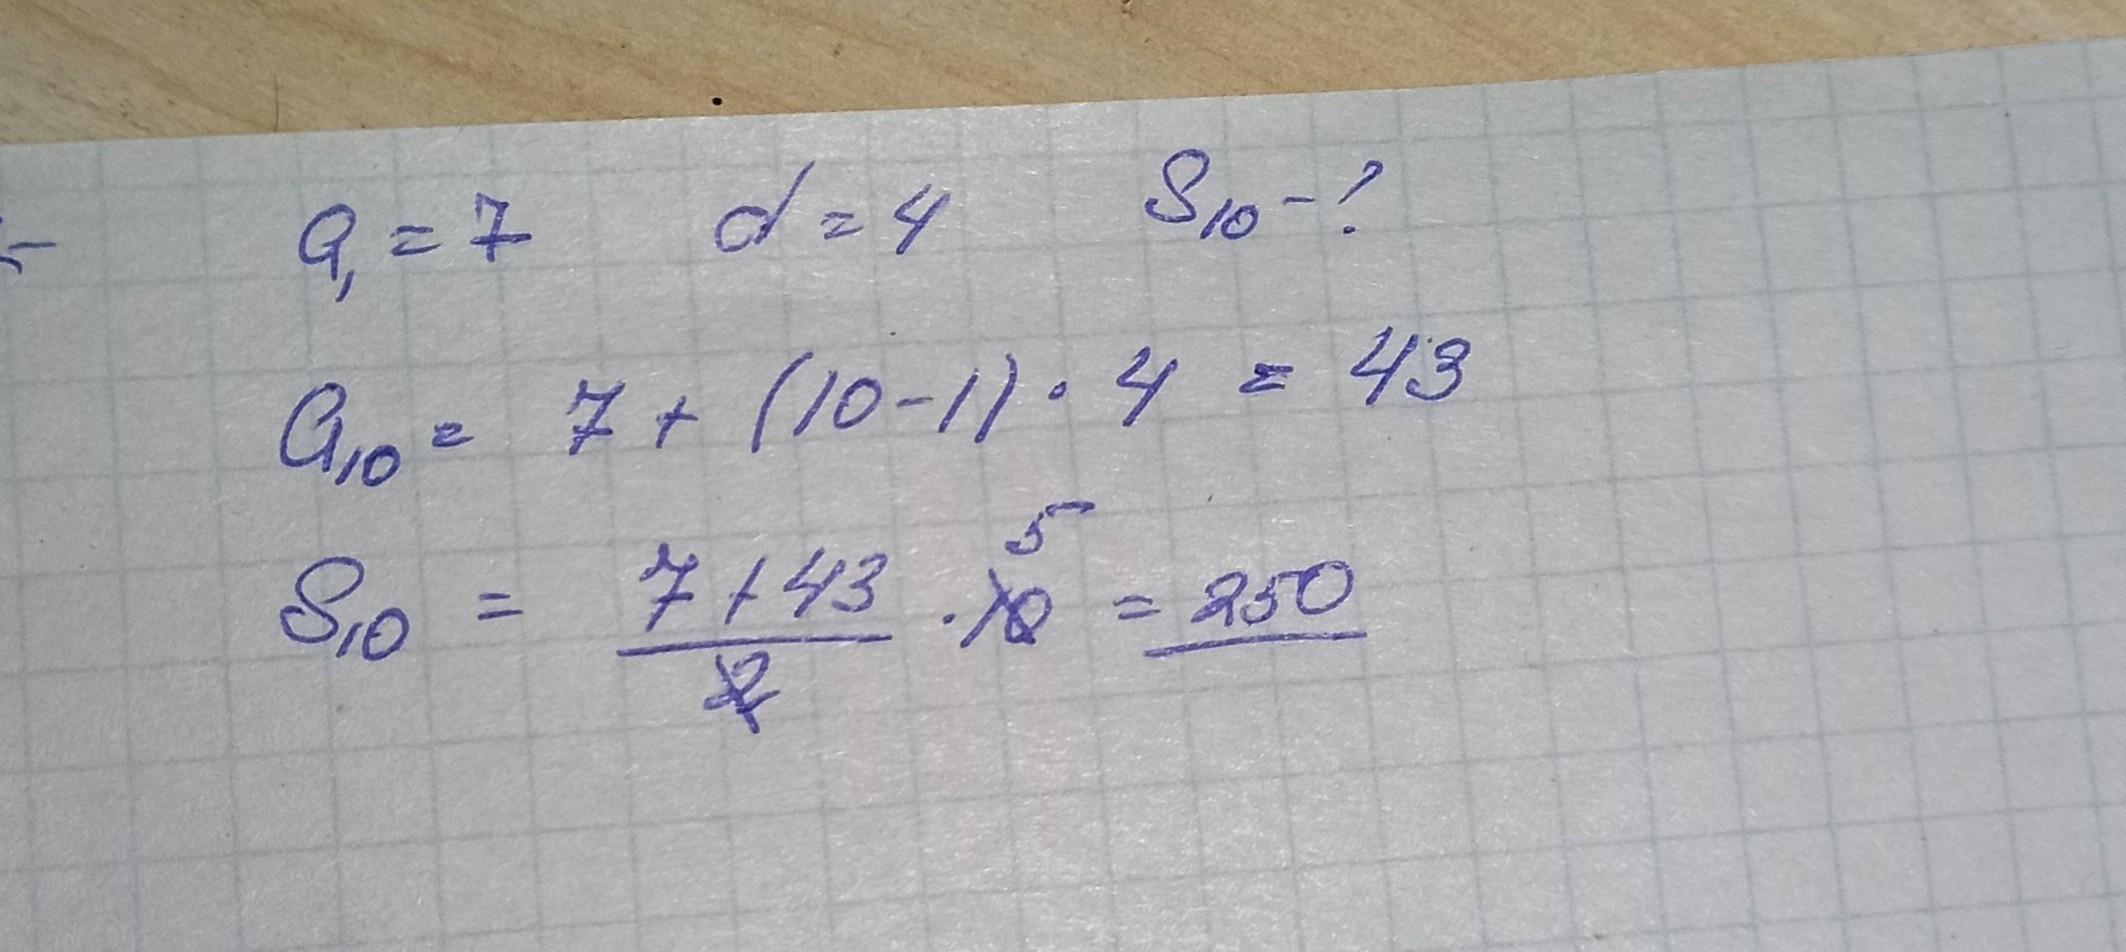 a₁ = 7 d = 4 S₁₀ - ?
a₁₀ = 7 + (10 - 1) · 4 = 43
S₁₀ = (7 + 43)/2 · 10 5 = 250